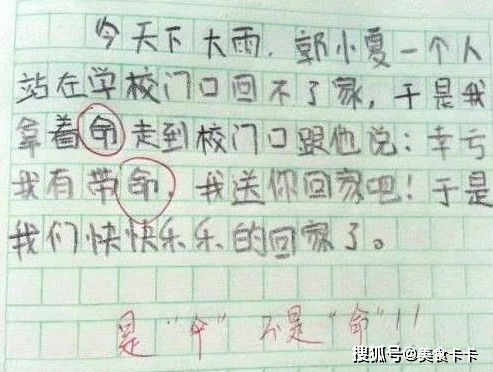 今天下大雨，郭小夏一个人
站在学校门口回不了家，于是我
拿着命走到校门口跟他说：幸亏
我有带命，我送你回家吧！于是
我们快快乐乐的回家了。
是"伞"不是"命"！！
搜狐号@美食卡卡